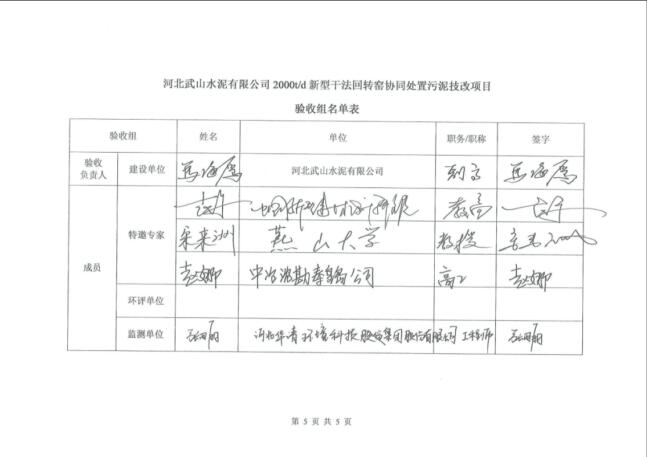 河北武山水泥有限公司 2000t/d 新型干法回转窑协同处置污泥技改项目
验收组名单表
验收组 姓名 单位 职务/职称 签字
验收负责人 建设单位 马海鹰 河北武山水泥有限公司 副高 马海鹰
成员 特邀专家 教高
宋来洲 燕山大学 教授
赵娜 中冶沈勘秦皇岛公司 高工 赵娜
环评单位
监测单位 河北华清环境科技股份集团股份有限公司 工程师
第 5 页 共 5 页